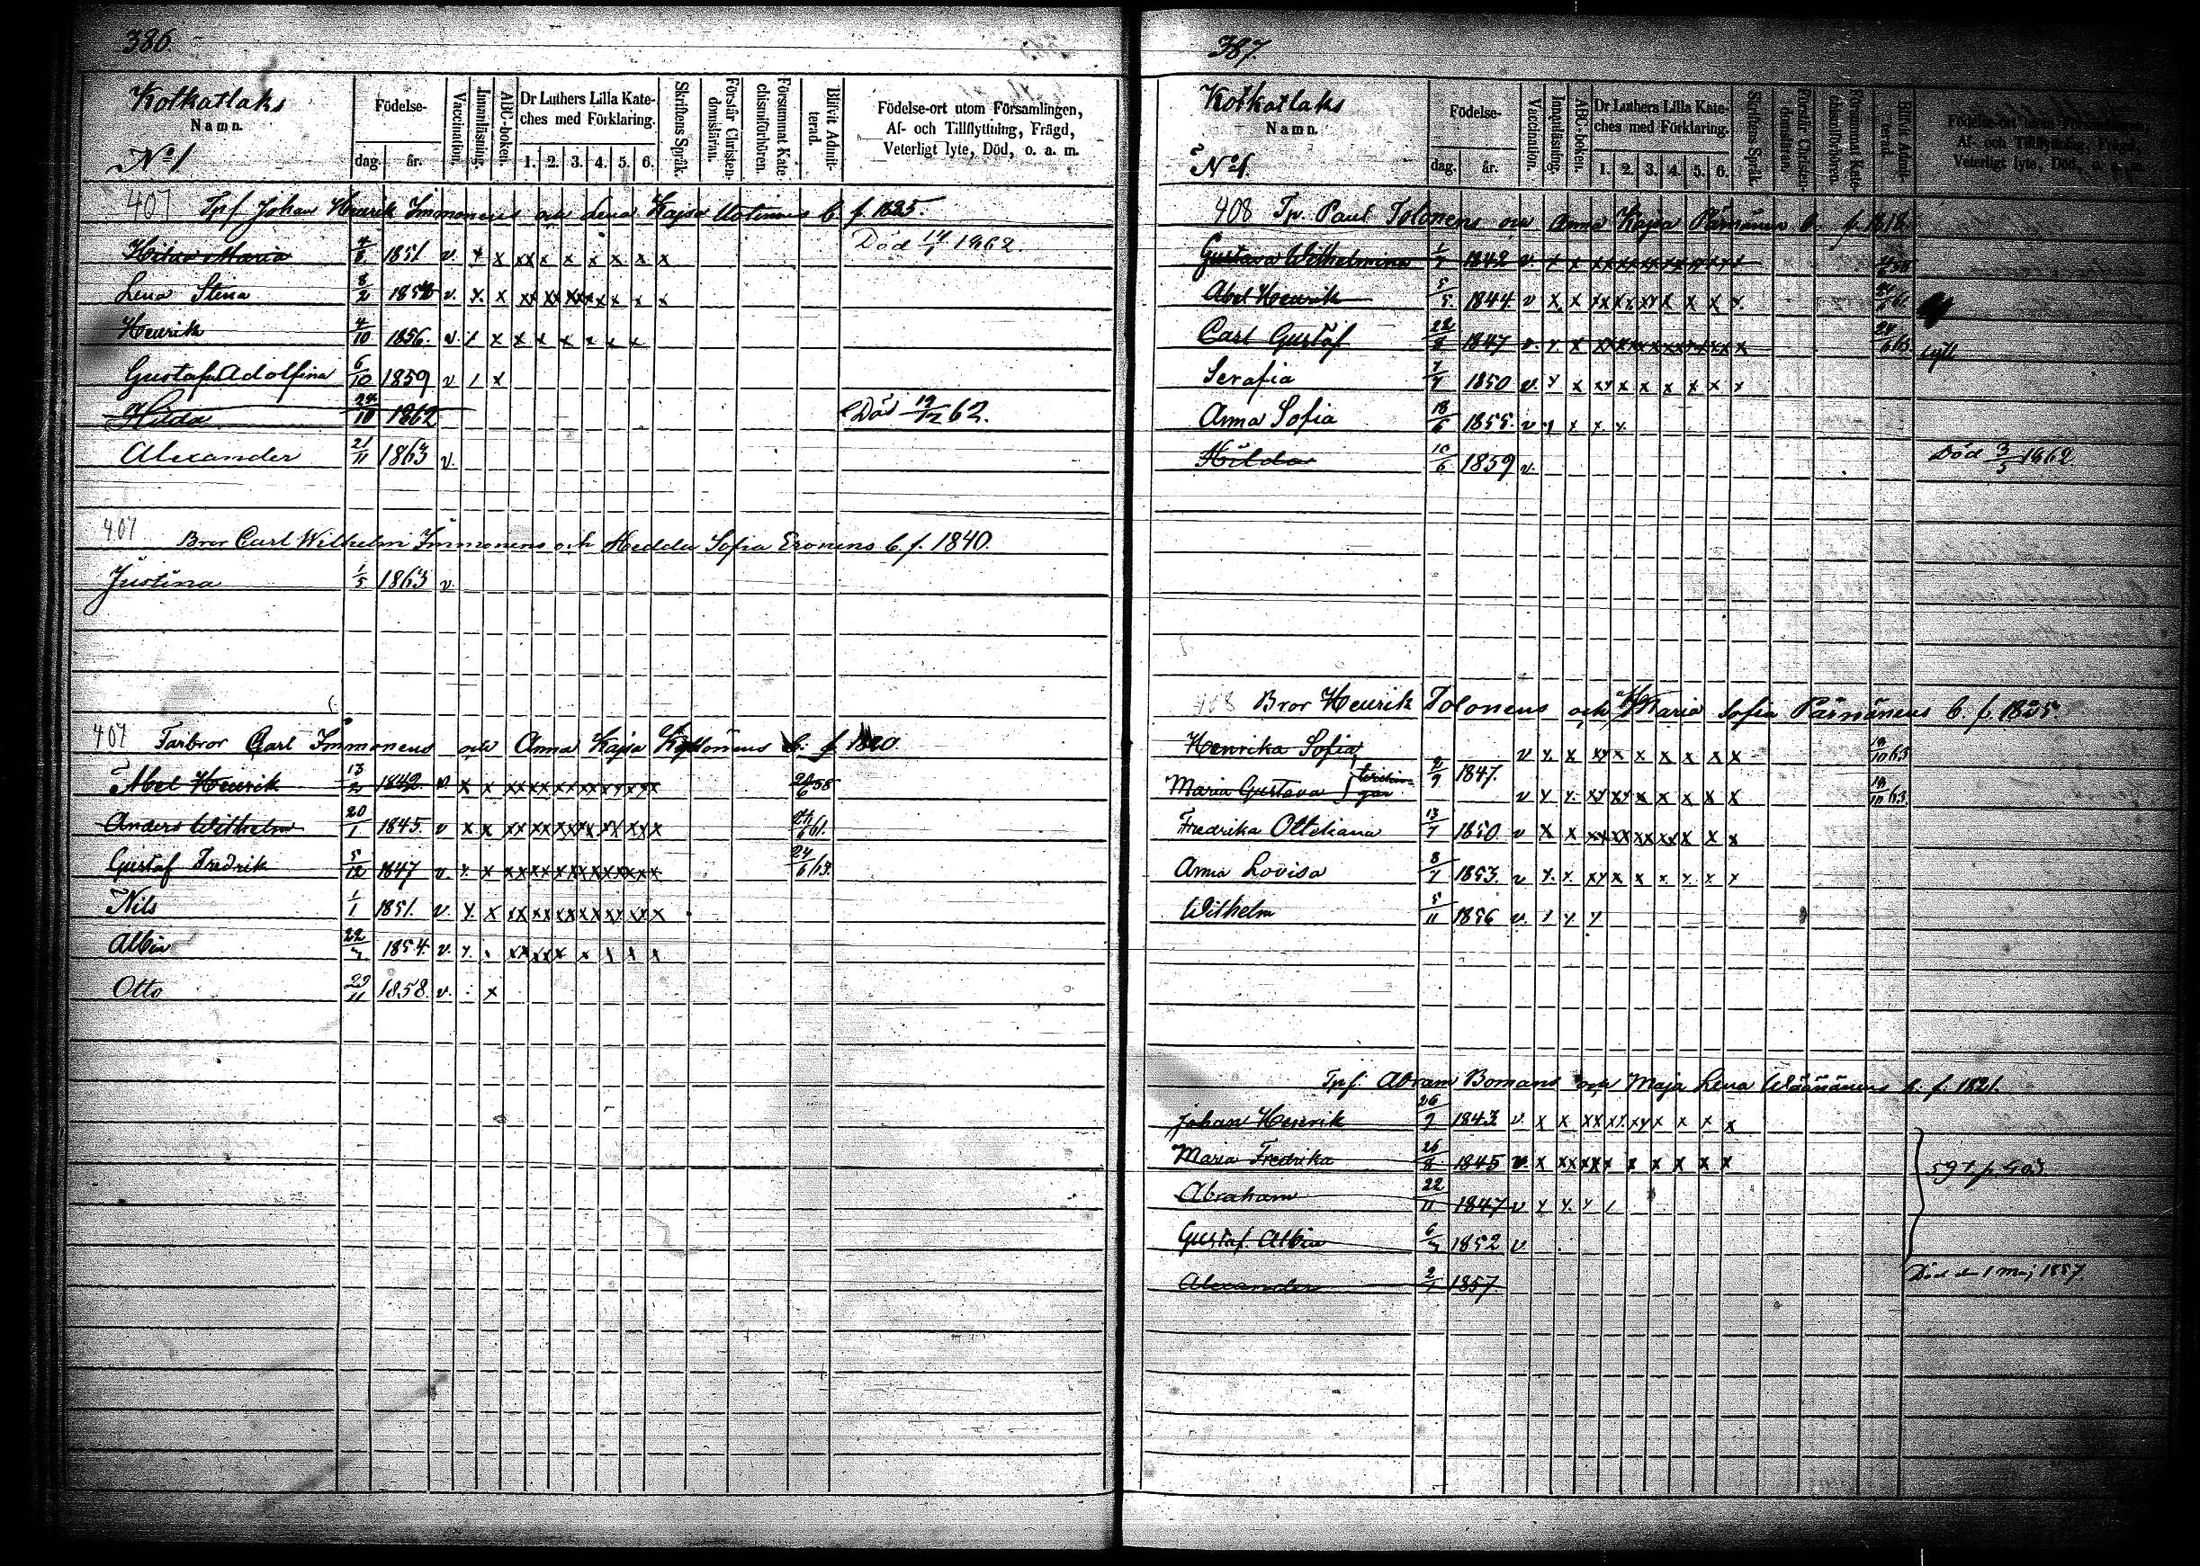 386.
Kotkatlaks
Namn.
No 1
Födelse-
dag. år.
Vaccination.
Innanläsning.
ABC-boken.
Dr Luthers Lilla Kate-
ches med Förklaring.
1. 2. 3. 4. 5. 6.
Skriftens Språk.
Förstår Christen-
domsläran.
Försummat Kate-
chismiförhören.
Blifvit Admit-
terad.
Födelse-ort utom Församlingen,
Af- och Tillflyttning, Frägd,
Veterligt lyte, Död, o. a. m.
407 Tpf Johan Henrik Immonens och Lena Kajsa b. f. 1835.
Maria 1851 v x x xx x x x x x x Död 1862.
Lena Stina 8/2 v. x x xx xx xxx x x x x
Henrik 4/10 1856. v / x x x x x x x
Gustafva Adolfina 6/10 1859 v / x
Hilda 24/10 1862 Död 19/12 62.
Alexander 21/11 1863 v.
407
Bror Carl Wilhelm Immonens och Hedda Sofia Eronens b. f. 1840.
Justina 1/5 1863 v.
407 Farbror Carl Immonens och Anna Kajsa b. f. 1820
Abel Henrik 13/2 1842 v x x xx xx xx xx xx xx 24/6 58
Anders Wilhelm 20/1 1845. v x x xx xx xx xx xx x 24/6 61.
Gustaf Fredrik 5/12 1847 v. x x xx xx xx xx xx xx 24/6 63.
Nils 1/1 1851. v. x x xx xx xx xx xx xx x
Albin 22/ 1854. v. x . xx xx x x x x x
Otto 29/11 1858. v. . x
387.
Kotkatlaks
Namn.
No 1.
Födelse-
dag. år.
Vaccination.
Innanläsning.
ABC-boken.
Dr Luthers Lilla Kate-
ches med Förklaring.
1. 2. 3. 4. 5. 6.
Skriftens Språk.
Förstår Christen-
domsläran.
Försummat Kate-
chismiförhören.
Blifvit Admit-
terad.
Födelse-ort utom Församlingen,
Af- och Tillflyttning, Frägd,
Veterligt lyte, Död, o. a. m.
408 Tp. Paul Tolonens och Anna Kajsa Pärnänen b. f. 1818.
Gustava Wilhelmina 1842 v. x x xx xx xx xx x x x 58
Abel Henrik 5/5 1844 v x x xx xx xx x x x x 24/6 61
Carl Gustaf 22/ 1847 v. x. x xx xx xx xx xx x x 24/6 63. lytt
Serafia 7/7 1850 v. x x xx x x x x x x
Anna Sofia 18/6 1855. v x x x x
Hilda 10/6 1859 v. Död 3/5 1862
408 Bror Henrik Tolonens och Maria Sofia Pärnänens b. f. 1825.
Henrika Sofia v x x xx x x x x x x 18/10 63
2/9 1847.
Maria Gustava v x x. xx xx x x x x x 18/10 63.
Fredrika Ottiliana 13/7 1850 v x x xx xx xx xx x x x
Anna Lovisa 8/7 1853. v x. x. xx x x x x x x
Wilhelm 5/11 1856 v. / x x
Tpf. Abram Bomans och Maja Lena Wäänänens b. f. 1821.
Johan Henrik 26/9 1843 v. x x xx xx xx x x x x
Maria Fredrika 26/8 1845 v. x xx xx x x x x x x
Abraham 22/11 1847 v x x x /
Gustaf Albin 6/ 1852 v
Alexander 2/ 1857. Död d 1 Maj 1857